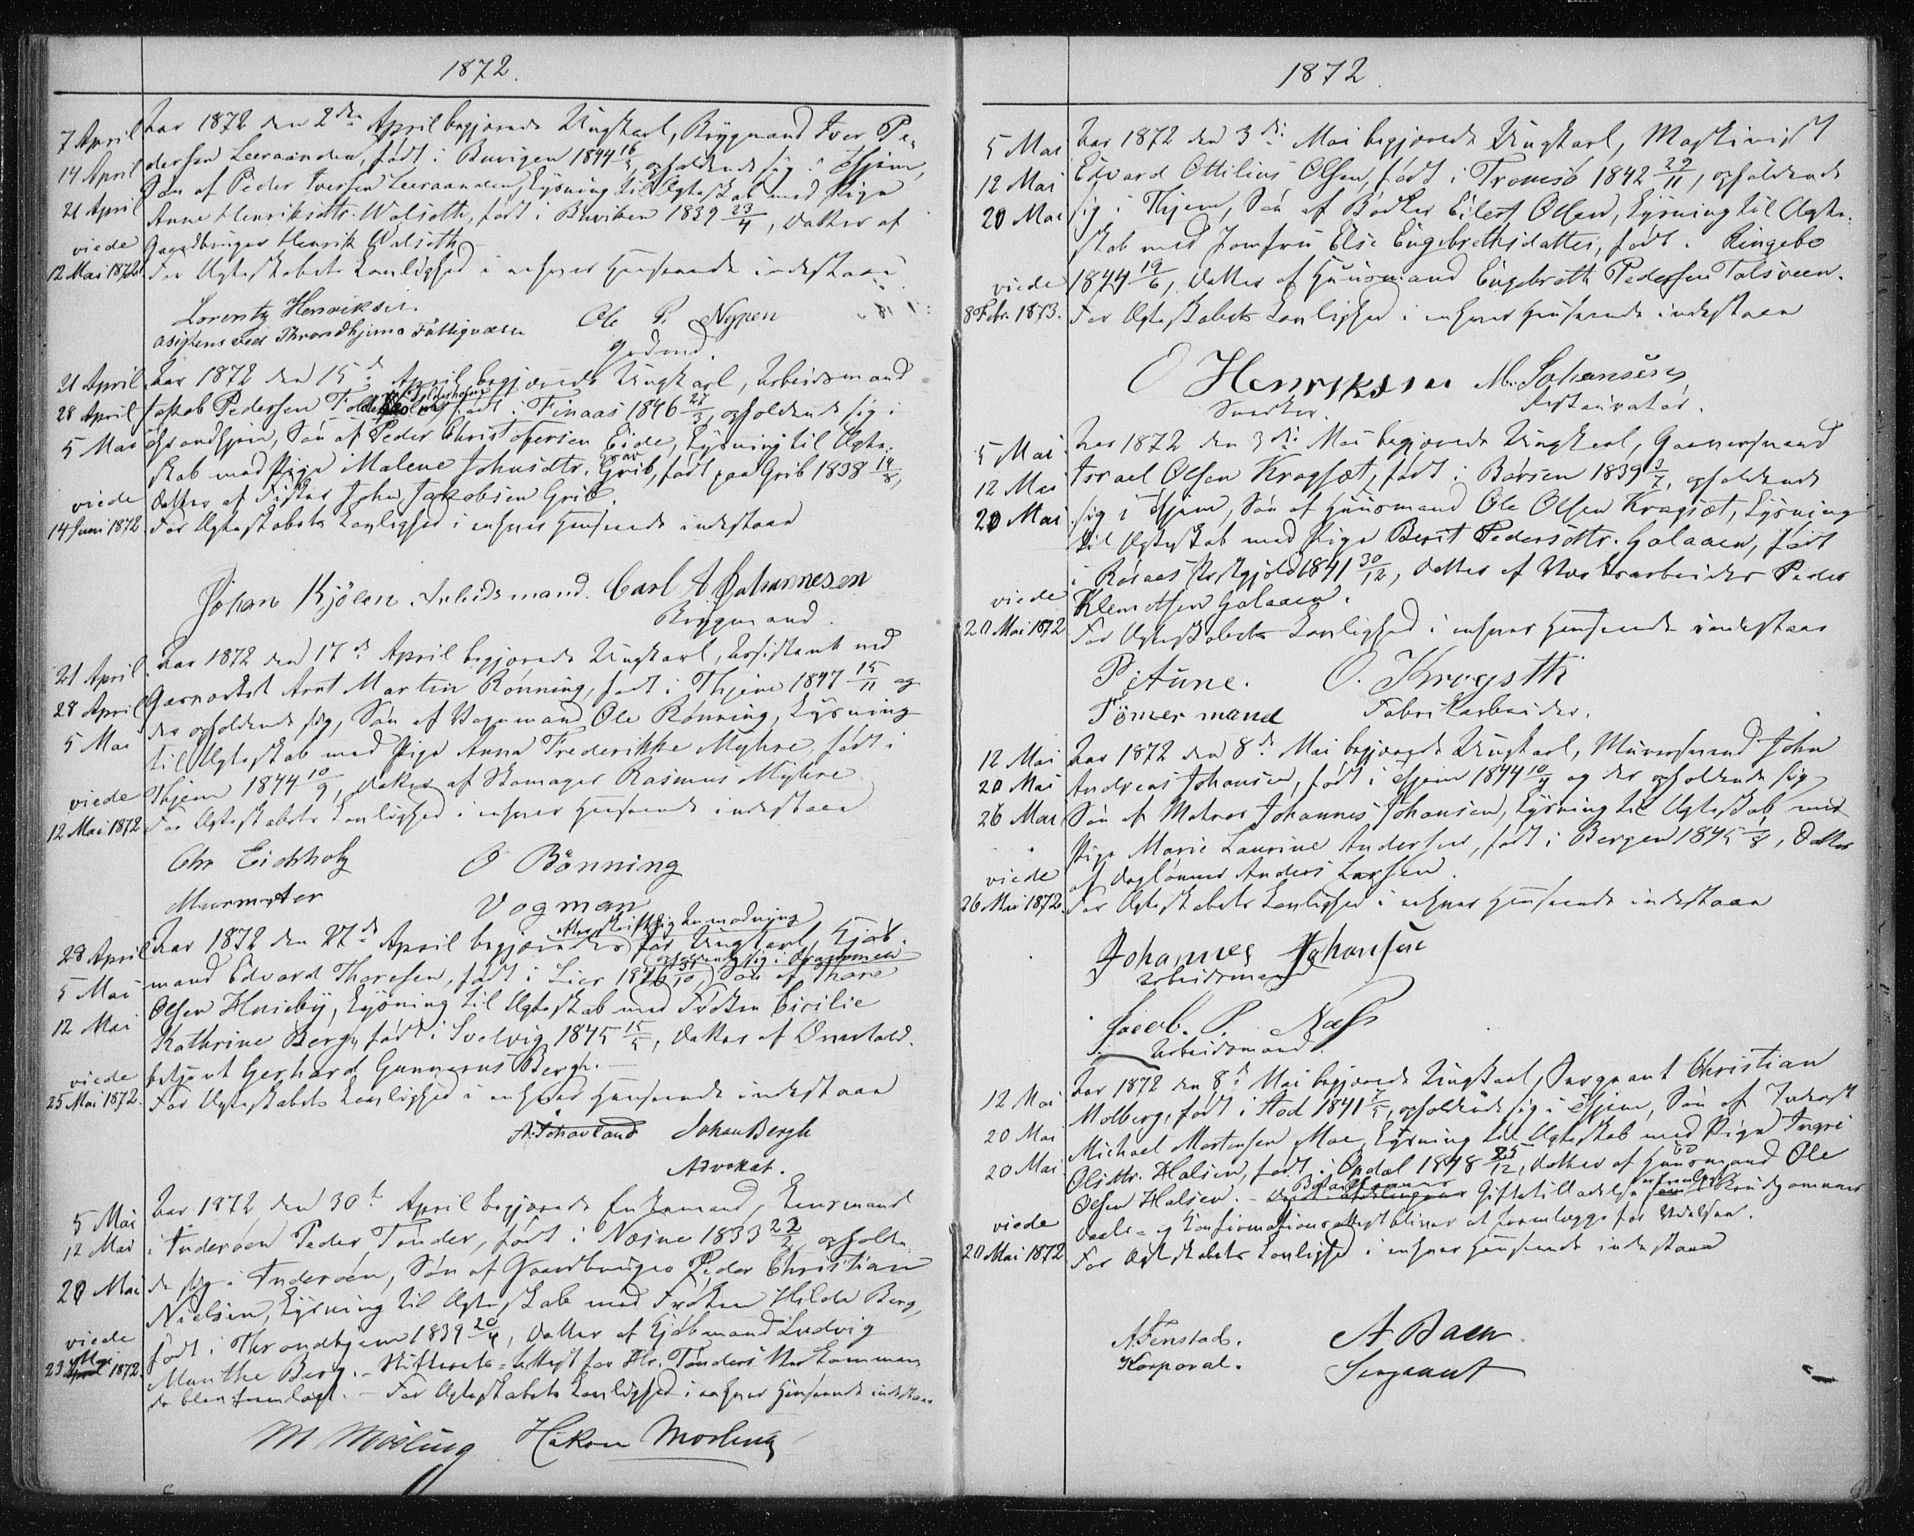 1872.
7 April
14 April
21 April
viede
12 Mai 1872
Aar 1872 den 2den April begjærede Ungkarl, Brygmand Iver Pe-
dersen Leeraanden, født i Buvigen 1844 16/3, opholdende sig i Thjem,
Søn af Peder Iversen Leeraanden, Lysning til Ægteskab med Pige
Anne Henriksdtr. Wolseth, født i Buviken 1839 23/4, Datter af
Gaardbruger Henrik Wolseth
For Ægteskabets Lovlighed i enhver Henseende indestaar
Lorentz Henriksen
asistens ved Throndhjems Fattigvæsen
Ole P. Nypen
Grdmd.
21 April
28 April
5 Mai
viede
14 Juni 1872
Aar 1872 den 15de April begjærede Ungkarl, Arbeidsmand
Jakob Pedersen født i Finaas 1846 27/3, opholdende sig i
Throndhjem, Søn af Peder Christofersen Eide, Lysning til Ægte-
skab med Pige Malene Johnsdtr. Grib, født paa Grib 1838 14/8,
Datter af Fisker John Jakobsen Grib.
For Ægteskabets Lovlighed i enhver Henseende indestaar
Johan Kjølen Arbeidsmand. Carl A Johannesen
Brygmand.
21 April
28 April
5 Mai
viede
12 Mai 1872
Aar 1872 den 17de April begjærede Ungkarl, Assistent ved
Gasværket Arnt Martin Rønning, født i Thjem 1847 15/11 og
der opholdende sig, Søn af Vognmand Ole Rønning, Lysning
til Ægteskab med Pige Anna Frederikke Myhre, født i
Thjem 1844 10/9, Datter af Skomager Rasmus Myhre
For Ægteskabets Lovlighed i enhver Henseende indestaar
Chr Eichholz
Murmster
O Rønning
Vogman
28 April
5 Mai
12 Mai
viede
25 Mai 1872.
skriftlig Anmodning
Aar 1872 den 27de April begjæredes for Ungkarl, Kjøb-
(opholdende sig i Drammen
mand Edvard Thoresen, født i Lier 1846 31/10) Søn af Thore
Olsen Huseby, Lysning til Ægteskab med Frøken Cicilie
Kathrine Bergh, født i Svelvig 1845 15/5, Datter af Overtold-
betjent Gerhard Gunnerus Bergh. —
For Ægteskabets Lovlighed i enhver Henseende indestaar
Johan Bergh
Advokat.
5 Mai
12 Mai
20 Mai
viede
23 Mai 1872.
Aar 1872 den 30te April begjærede Enkemand, Lensmand
i Inderøen Peder Tønder, født i Næsne 1833 22/2 opholden-
de sig i Inderøen, Søn af Gaardbruger Peder Christian
Nielsen, Lysning til Ægteskab med Frøken Hilda Berg,
født i Throndhjem 1839 20/4, Datter af Kjøbmand Ludvig
Munthe Berg. — Skifterets-Attest for Hr. Tønders Vedkommen-
de blev fremlagt. — For Ægteskabets Lovlighed i enhver Henseende indestaar
M Møsling Håkon Mosling
1872
5 Mai
12 Mai
20 Mai
viede
8 Febr. 1873.
Aar 1872 den 3die Mai begjærede Ungkarl, Maskinist
Edvard Ottilius Olsen, født i Tromsø 1842 29/11, opholdende
sig i Thjem, Søn af Bødker Eilert Olsen, Lysning til Ægte-
skab med Jomfru Else Engebrethsdatter, født i Ringebo
1844 19/6, Datter af Huusmand Engebreth Pedersen Tolsveen.
For Ægteskabets Lovlighed i enhver Henseende indestaar
O Henriksen
Snedker.
M. Johansens
Restauratør.
5 Mai
12 Mai
20 Mai
viede
20 Mai 1872
Aar 1872 den 3die Mai begjærede Ungkarl, Garversvend
Israel Olsen Kragsæt, født i Børsen 1839 3/7, opholdende
sig i Thjem, Søn af Huusmand Ole Olsen Kragsæt, Lysning
til Ægteskab med Pige Berit Pedersdtr. Galaaen, født
i Røraas Prstgjeld 1841 30/12, Datter af Værksarbeider Peder
Klemetsen Galaaen.
For Ægteskabets Lovlighed i enhver Henseende indestaar
P Aune.
Tømer mand
O. Krogstti
Fabrikarbeider.
12 Mai
20 Mai
26 Mai
viede
26 Mai 1872.
Aar 1872 den 8de Mai begjærede Ungkarl, Muursvend John
Andreas Johansen, født i Thjem 1844 10/4 og der opholdende sig
Søn af Matros Johannes Johansen, Lysning til Ægteskab med
Pige Marie Laurine Andersen, født i Bergen 1845 1/8, Datter
af Daglønner Anders Larsen.
For Ægteskabets Lovlighed i enhver Henseende indestaar
Johannes Johansen
Arbeidsmand
Jacob. P. Næss
Arbeidsmand.
12 Mai
20 Mai
20 Mai
viede
20 Mai 1872
Aar 1872 den 8de Mai begjærede Ungkarl, Sergeant Christian
Molberg, født i Stod 1841 7/5, opholdende sig i Thjem, Søn af Inderst
Michael Mortensen Moe, Lysning til Ægteskab med Pige Ingri
Olsdtr. Halsen, født i Opdal 1848 25/12, Datter af Huusmand Ole
Olsen Halsen. — Giftetilladelse Brudgommens
Daabs- og Konfirmationsattest bliver at fremlægge før Vielsen.
For Ægteskabets Lovlighed i enhver Henseende indestaar
A. Fenstad.
Korporal.
A Baen
Sergeant